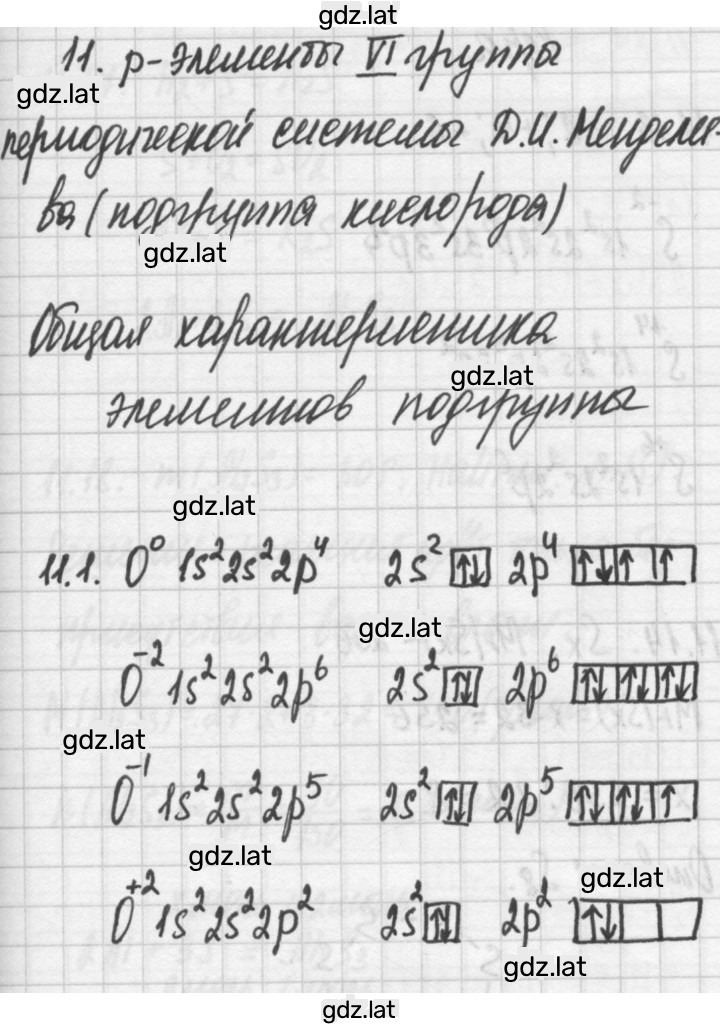 gdz.lat
11. р-элементы VI группы
gdz.lat
периодической системы Д.И. Менделее-
ва (подгруппа кислорода)
gdz.lat
Общая характеристика
gdz.lat
элементов подгруппы
gdz.lat
11.1. O⁰ 1s²2s²2p⁴ 2s² ↑↓ 2p⁴ ↑↓ ↑ ↑
gdz.lat
O⁻² 1s²2s²2p⁶ 2s² ↑↓ 2p⁶ ↑↓ ↑↓ ↑↓
gdz.lat
O⁻¹ 1s²2s²2p⁵ 2s² ↑↓ 2p⁵ ↑↓ ↑↓ ↑
gdz.lat
gdz.lat
O⁺² 1s²2s²2p² 2s² ↑↓ 2p² ↑↓
gdz.lat
gdz.lat